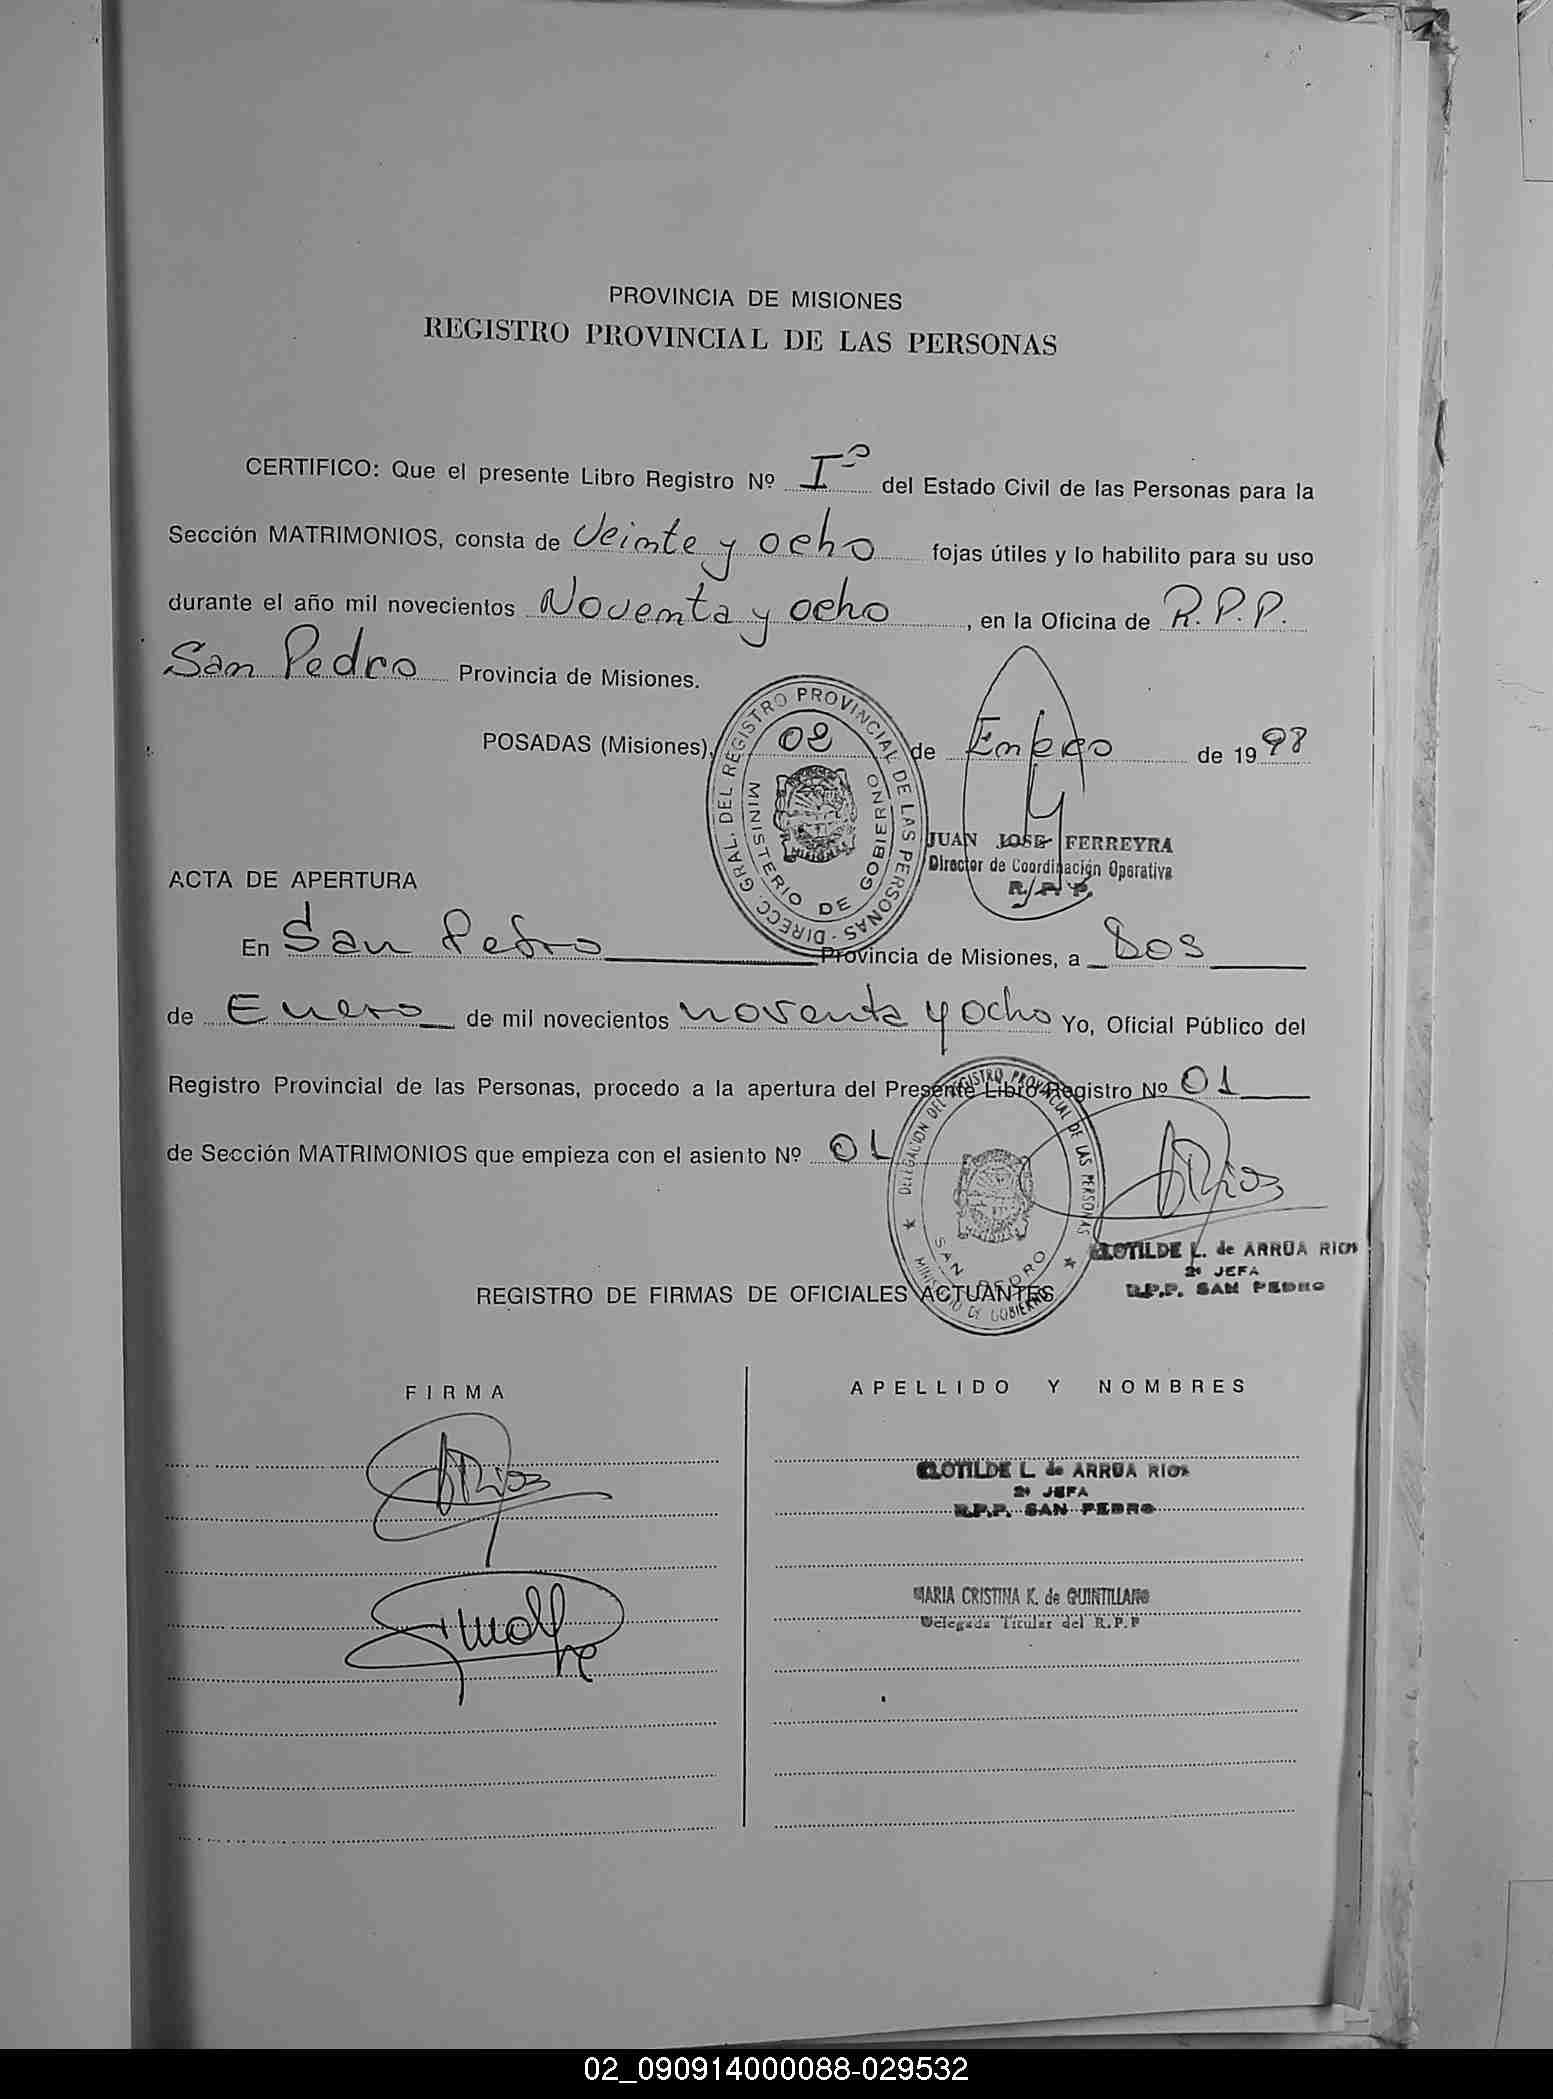 PROVINCIA DE MISIONES
REGISTRO PROVINCIAL DE LAS PERSONAS
CERTIFICO: Que el presente Libro Registro Nº Iº del Estado Civil de las Personas para la
Sección MATRIMONIOS, consta de Veinte y ocho fojas útiles y lo habilito para su uso
durante el año mil novecientos Noventa y ocho, en la Oficina de R.P.P.
San Pedro Provincia de Misiones.
POSADAS (Misiones), 02 de Enero de 1998
DIRECC. GRAL. DEL REGISTRO PROVINCIAL DE LAS PERSONAS
MINISTERIO DE GOBIERNO
MISIONES
JUAN JOSE FERREYRA
Director de Coordinación Operativa
R. P. P.
ACTA DE APERTURA
En San Pedro Provincia de Misiones, a Dos
de Enero de mil novecientos noventa y ocho Yo, Oficial Público del
Registro Provincial de las Personas, procedo a la apertura del Presente Libro Registro Nº 01
de Sección MATRIMONIOS que empieza con el asiento Nº 01
DELEGACION DEL REGISTRO PROVINCIAL DE LAS PERSONAS
SAN PEDRO
MINISTERIO DE GOBIERNO
ARios
CLOTILDE L. de ARRUA RIOS
2ª JEFA
R.P.P. SAN PEDRO
REGISTRO DE FIRMAS DE OFICIALES ACTUANTES
FIRMA APELLIDO Y NOMBRES
ARios
CLOTILDE L. de ARRUA RIOS
2ª JEFA
R.P.P. SAN PEDRO
MARIA CRISTINA K. de QUINTILLANO
Delegada Titular del R.P.P
02_090914000088-029532